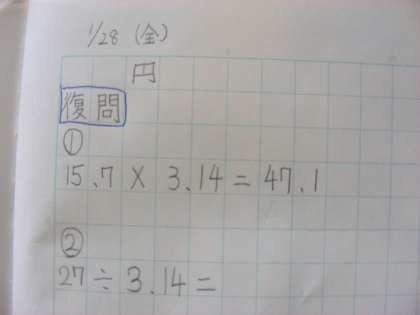 1/28 (金)
円
復問
①
15.7 × 3.14 = 47.1
②
27 ÷ 3.14 =